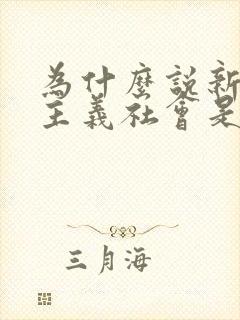 為什麼說新
主義社會是
三月海